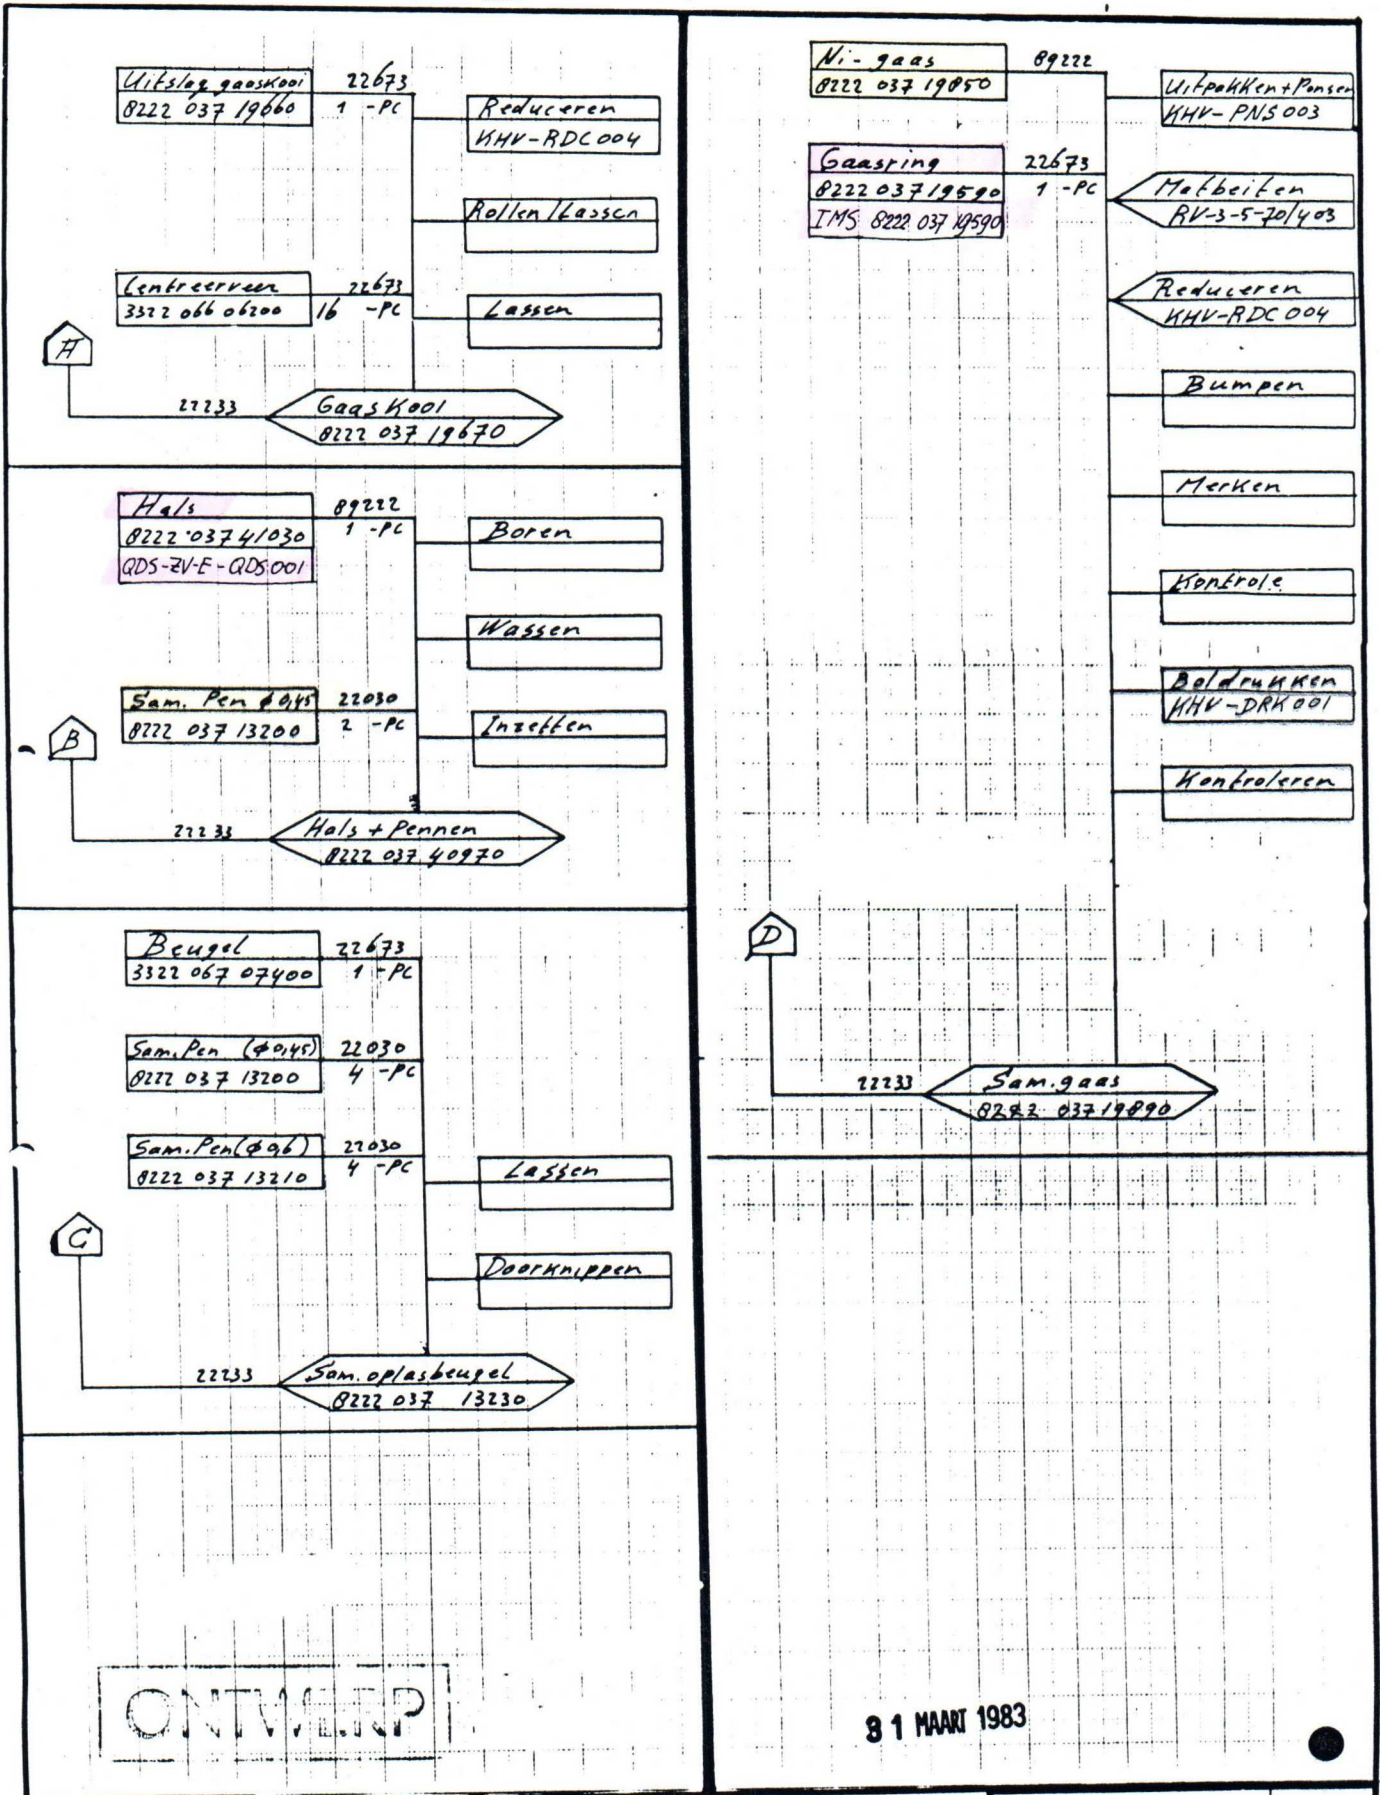 Uitslag gaaskooi 22673
8222 037 19660 1 -PC
Reduceren
KHV-RDC 004
Rollen/Lassen
Centreerveer 22673
3322 066 06200 16 -PC
Lassen
A
22233
Gaas Kooi
8222 037 19670
Hals 89222
8222 037 41030 1 -PC
QDS-ZV-E-QDS001
Boren
Wassen
Sam. Pen ϕ 0,45 22030
8222 037 13200 2 -PC
Inzetten
B
22233
Hals + Pennen
8222 037 40970
Beugel 22673
3322 067 07400 1 -PC
Sam. Pen (ϕ 0,45) 22030
8222 037 13200 4 -PC
Sam. Pen (ϕ 0,6) 22030
8222 037 13210 4 -PC
Lassen
C
Doorknippen
22233
Sam. oplasbeugel
8222 037 13230
ONTWERP
Ni-gaas 89222
8222 037 19850
Uitpakken + Ponsen
KHV-PNS 003
Gaasring 22673
8222 037 19590 1 -PC
IMS 8222 037 19590
Matbeiten
RV-3-5-70/403
Reduceren
KHV-RDC 004
Bumpen
Merken
Kontrole
Boldrukken
KHV-DRK 001
Kontroleren
D
22233
Sam. gaas
8222 037 19890
31 MAART 1983